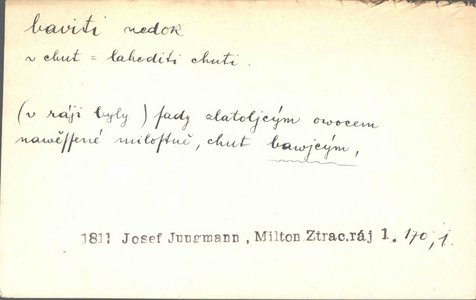 baviti nedok
v chut = lahoditi chuti.
(v ráji byly) ſady zlatoljcým owocem
nawěſſené miloſtně, chut bawjcým,
1811 Josef Jungmann, Milton Ztrac.ráj 1. 170, 1.